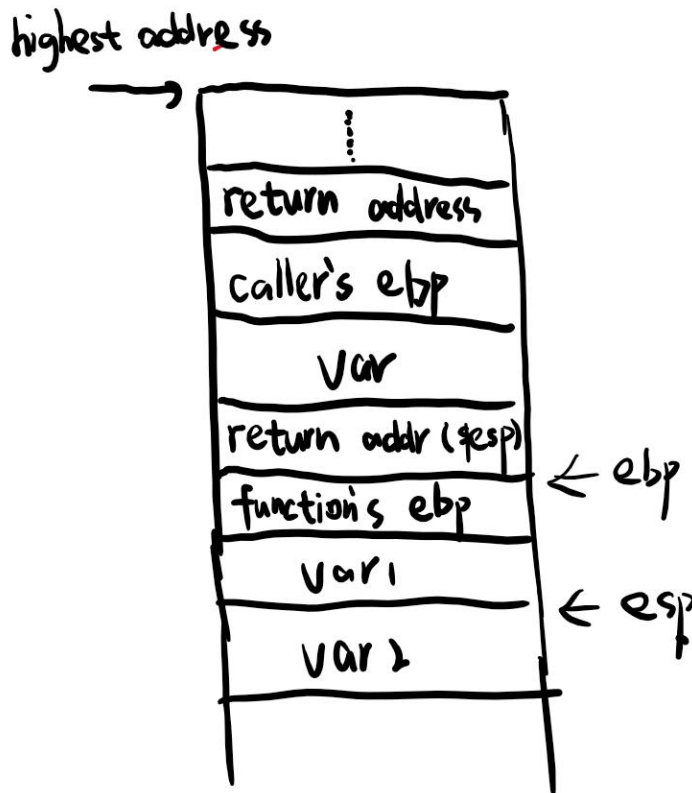 highest address
return address
caller's ebp
var
return addr ($esp)
← ebp
function's ebp
var1
← esp
var2